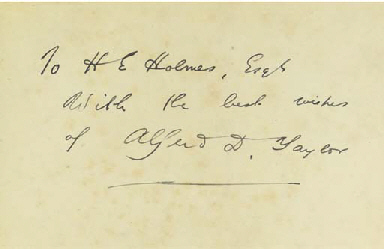 To H E Holmes, Esqr
With the best wishes
of Alfred D. Taylor